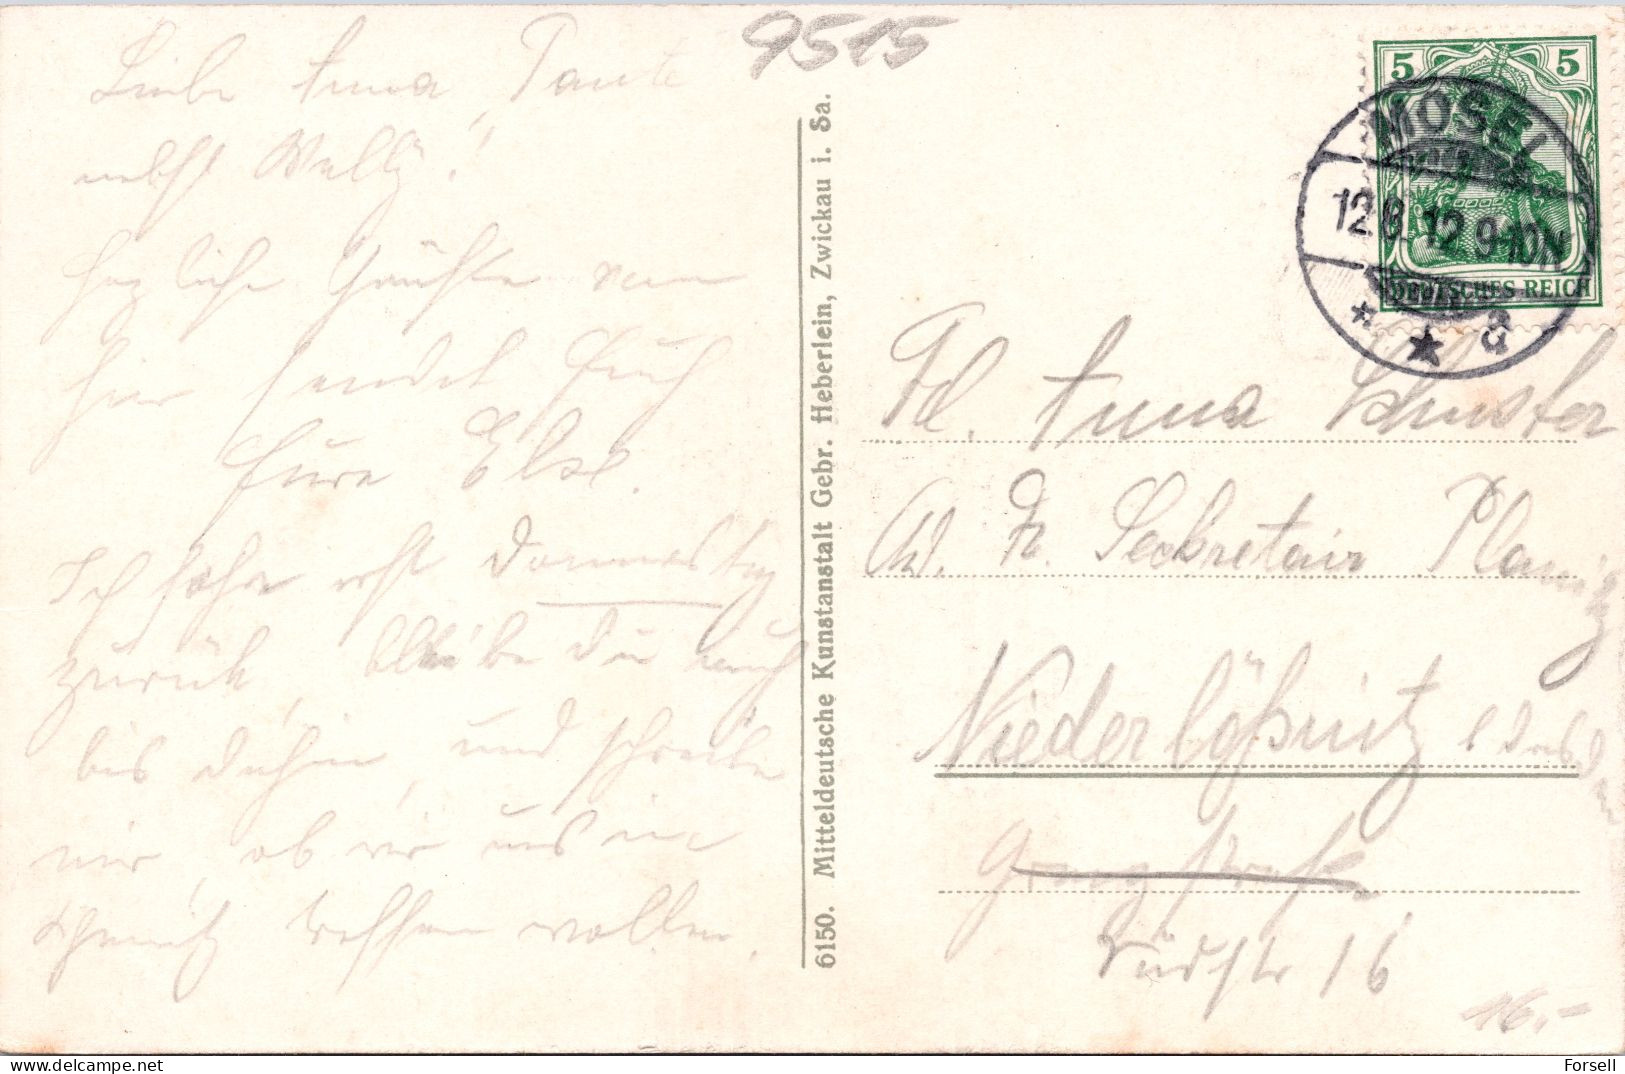 9515
Liebe Anna, Tante
nebst Willy!
Herzliche Grüße von
hier sendet Euch
Eure Else.
Ich fahre erst Donnerstag
zurück, bleibe Du auch
bis dahin und schreibe
mir, ob wir uns in
Chemnitz treffen wollen.
6150. Mitteldeutsche Kunstanstalt Gebr. Heberlein, Zwickau i. Sa.
5 5
DEUTSCHES REICH
MOSEL
12.8.12.9-10N
* ★ a
Frl. Anna Schuster
Ad. Fr. Sekretair Planitz
Niederlößnitz b Dresden
Südstr 16
16.-
Forsell